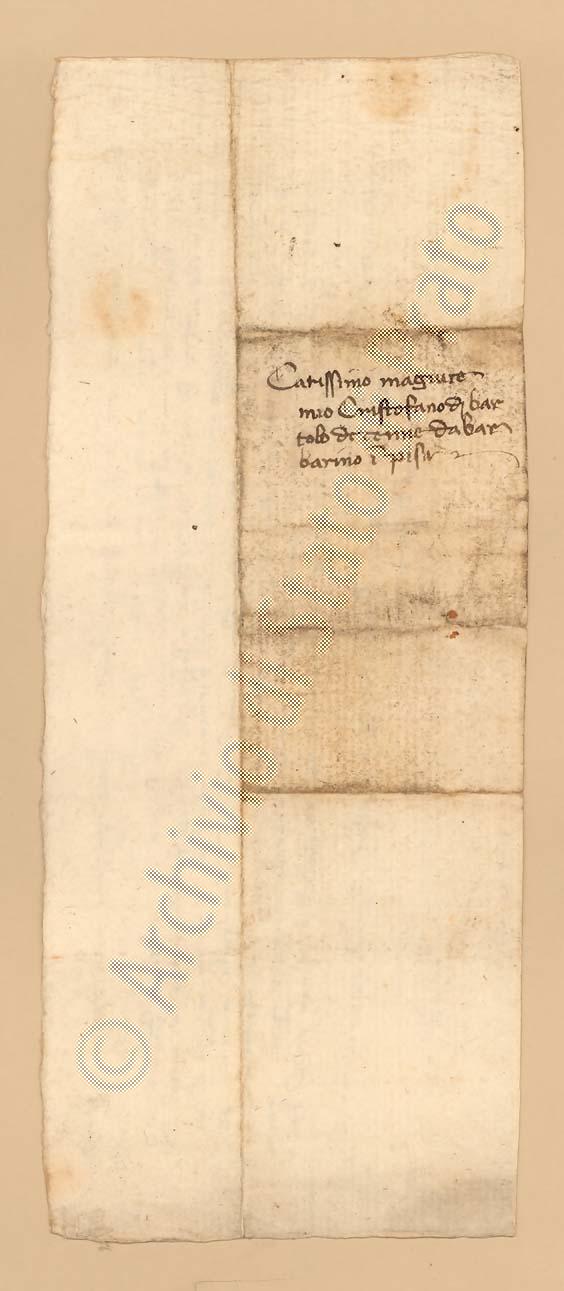 Carissimo magiore
mio Cristofano di bar
tolo di cenne da bar
barino ī pisa
© Archivio di Stato di Prato